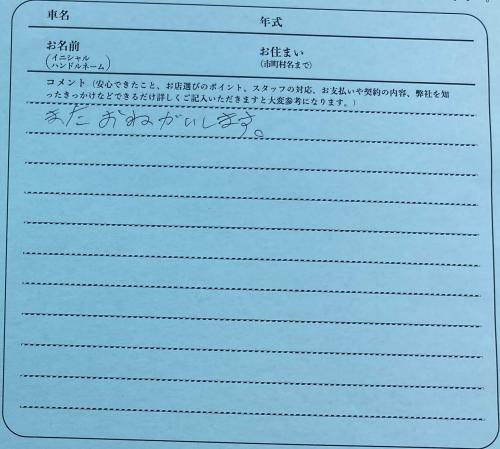 車名 年式
お名前 (イニシャル ハンドルネーム) お住まい (市町村名まで)
コメント（安心できたこと、お店選びのポイント、スタッフの対応、お支払いや契約の内容、弊社を知
ったきっかけなどできるだけ詳しくご記入いただきますと大変参考になります。）
またおねがいします。